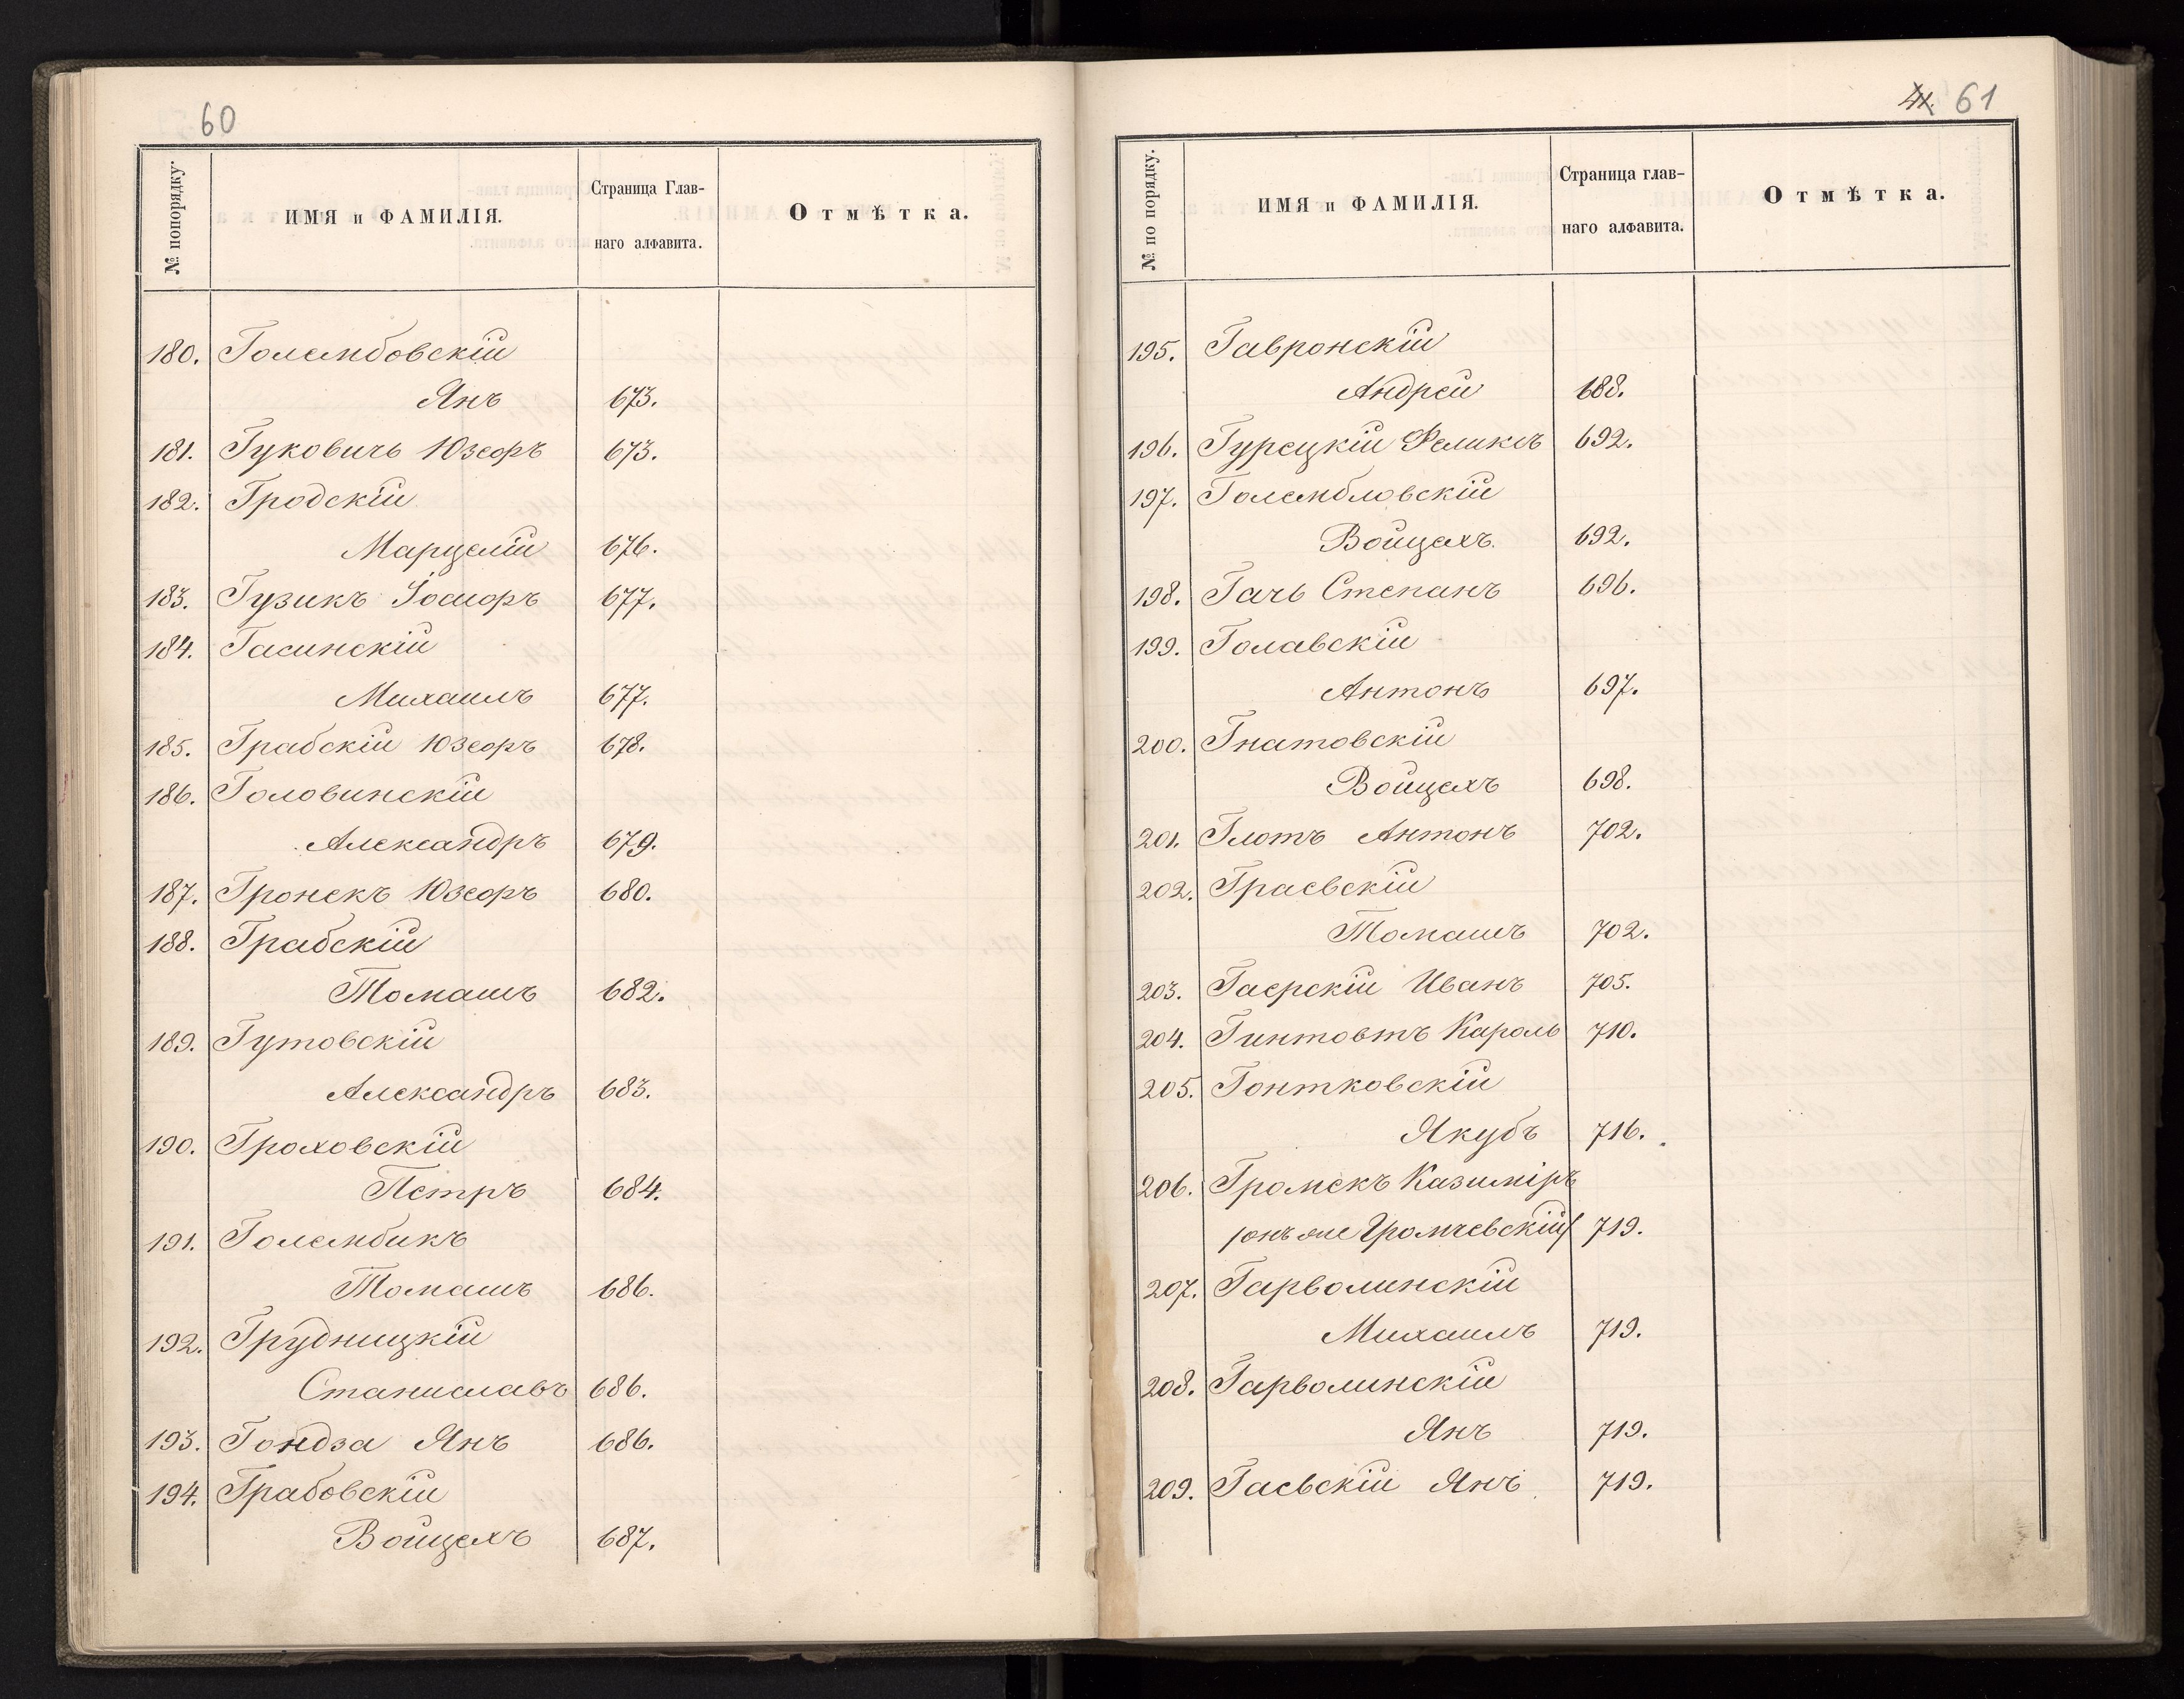 60
№ попорядку.
ИМЯ и ФАМИЛІЯ.
Страница Глав-
наго алфавита.
Отмѣтка.
180. Голембовскій
Янъ 673.
181. Гуковичъ Юзефъ 673.
182. Гродскій
Марцелій 676.
183. Гузикъ Іосифъ 677.
184. Гасинскій
Михаилъ 677.
185. Грабскій Юзефъ 678.
186. Головинскій
Александръ 679.
187. Гронекъ Юзефъ 680.
188. Грабскій
Томашъ 682.
189. Гутовскій
Александръ 683.
190. Гроховскій
Петръ 684.
191. Голембикъ
Томашъ 686.
192. Грудницкій
Станиславъ 686.
193. Гондза Янъ 686.
194. Грабовскій
Войцехъ 687.
41. 61
№ по порядку.
ИМЯ и ФАМИЛІЯ.
Страница глав-
наго алфавита.
Отмѣтка.
195. Гавронскій
Андрей 688.
196. Гурецкій Феликсъ 692.
197. Голембловскій
Войцехъ 692.
198. Гачь Степанъ 696.
199. Голавскій
Антонъ 697.
200. Гнатовскій
Войцехъ 698.
201. Глотъ Антонъ 702.
202. Граевскій
Томашъ 702.
203. Гаерскій Иванъ 705.
204. Гинтовтъ Кароль 710.
205. Гонтковскій
Якубъ 716.
206. Громекъ Казиміръ
/онъ же Громчевскій/ 719.
207. Гарволинскій
Михаилъ 719.
208. Гарволинскій
Янъ 719.
209. Гаевскій Янъ 719.